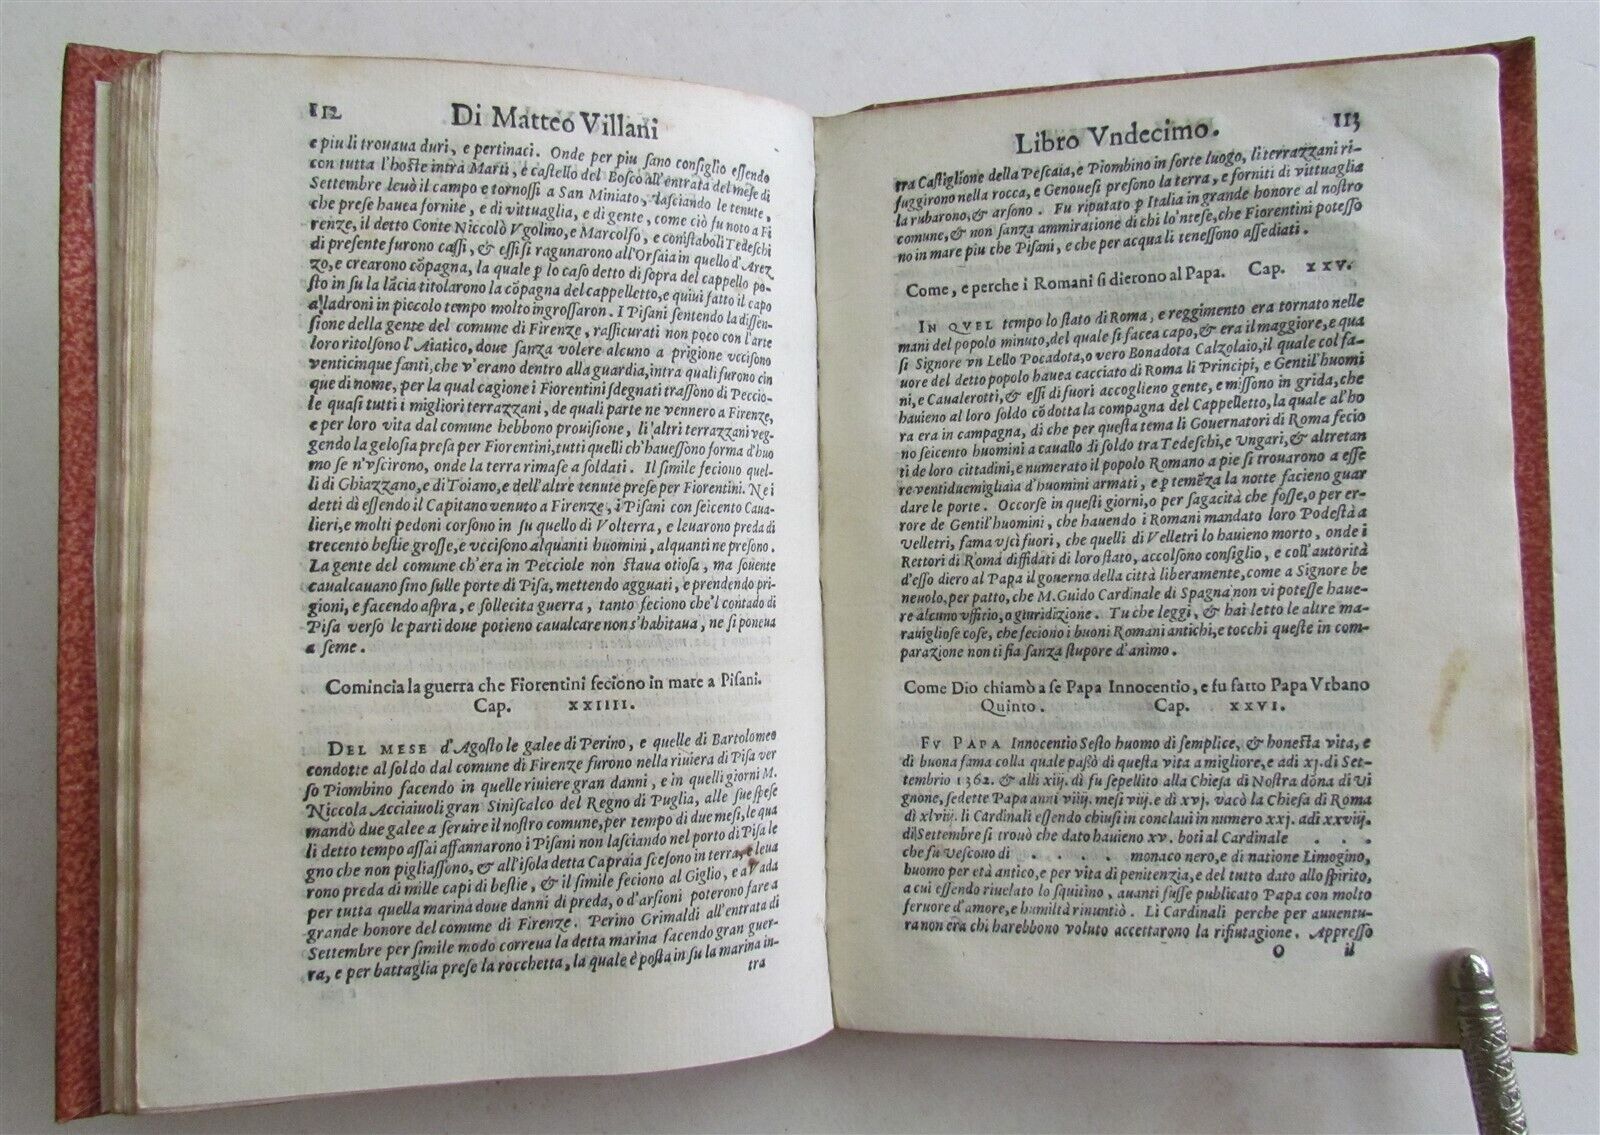 112 Di Matteo Villani
e piu li trouaua duri, e pertinaci. Onde per piu sano consiglio essendo
con tutta l'hoste intra Marti, e castello del Bosco all'entrata del mese di
Settembre leuò il campo e tornossi a San Miniato, lasciando le tenute,
che prese hauea fornite, e di vittuaglia, e di gente, come ciò fu noto a Fi
renze, il detto Conte Niccolò Vgolino, e Marcolfo, e conistaboli Tedeschi
di presente furono cassi, & essi si ragunarono all'Orsaia in quello d'Arez
zo, e crearono cōpagna, la quale p lo caso detto di sopra del cappello po-
sto in su la lācia titolarono la cōpagna del cappelletto, e quiui fatto il capo
a' ladroni in piccolo tempo molto ingrossaron. I Pisani sentendo la dissen-
sione della gente del comune di Firenze, rassicurati non poco con l'arte
loro ritolsono l'Aiatico, doue sanza volere alcuno a prigione vccisono
venticinque fanti, che v'erano dentro alla guardia, intra quali furono cin
que di nome, per la qual cagione i Fiorentini sdegnati trassono di Peccio-
le quasi tutti i migliori terrazzani, de quali parte ne vennero a Firenze,
e per loro vita dal comune hebbono prouisione, li altri terrazzani veg-
gendo la gelosia presa per Fiorentini, tutti quelli ch'hauessono forma d'huo
mo se n'vscirono, onde la terra rimase a soldati. Il simile feciono quel-
li di Ghiazzano, e di Toiano, e dell'altre tenute prese per Fiorentini. Ne i
detti dì essendo il Capitano venuto a Firenze, i Pisani con seicento Caua-
lieri, e molti pedoni corsono in su quello di Volterra, e leuarono preda di
trecento bestie grosse, e vccisono alquanti huomini, alquanti ne presono.
La gente del comune ch'era in Pecciole non staua otiosa, ma souente
caualcauano sino sulle porte di Pisa, mettendo agguati, e prendendo pri-
gioni, e facendo aspra, e sollecita guerra, tanto feciono che'l contado di
Pisa verso le parti doue potieno caualcare non s'habitaua, ne si poneua
a seme.
Comincia la guerra che Fiorentini feciono in mare a Pisani.
Cap. XXIIII.
DEL MESE d'Agosto le galee di Perino, e quelle di Bartolomeo
condotte al soldo dal comune di Firenze furono nella riuiera di Pisa ver
so Piombino facendo in quelle riuiere gran danni, e in quelli giorni M.
Niccola Acciaiuoli gran Siniscalco del Regno di Puglia, alle sue spese
mandò due galee a seruire il nostro comune, per tempo di due mesi, le qua
li detto tempo assai affannarono i Pisani non lasciando nel porto di Pisa le
gno che non pigliassono, & all'isola detta Capraia scesono in terra, e leua
rono preda di mille capi di bestie, & il simile feciono al Giglio, e a Vada
per tutta quella marina doue danni di preda, o d'arsioni poterono fare a
grande honore del comune di Firenze. Perino Grimaldi all'entrata di
Settembre per simile modo correua la detta marina facendo gran guer-
ra, e per battaglia prese la rocchetta, la quale è posta in su la marina in-
tra
Libro Vndecimo. 113
tra Castiglione della Pescaia, e Piombino in forte luogo, li terrazzani ri-
fuggirono nella rocca, e Genouesi presono la terra, e forniti di vittuaglia
la rubarono, & arsono. Fu riputato p Italia in grande honore al nostro
comune, & non sanza ammiratione di chi lo'ntese, che Fiorentini potesso
no in mare piu che Pisani, e che per acqua li tenessono assediati.
Come, e perche i Romani si dierono al Papa. Cap. XXV.
IN QVEL tempo lo stato di Roma, e reggimento era tornato nelle
mani del popolo minuto, del quale si facea capo, & era il maggiore, e qua
si Signore vn Lello Pocadota, o vero Bonadota Calzolaio, il quale col fa-
uore del detto popolo hauea cacciato di Roma li Principi, e Gentil'huomi
ni, e Caualerotti, & essi di fuori accoglieno gente, e missono in grida, che
hauieno al loro soldo cōdotta la compagna del Cappelletto, la quale al'ho
ra era in campagna, di che per questa tema li Gouernatori di Roma fecio
no seicento huomini a cauallo di soldo tra Tedeschi, e Ungari, & altretan
ti de loro cittadini, e numerato il popolo Romano a pie si trouarono a esse
re ventiduemigliaia d'huomini armati, e p temēza la notte facieno guar
dare le porte. Occorse in questi giorni, o per sagacità che fosse, o per er-
rore de Gentil'huomini, che hauendo i Romani mandato loro Podestà a
Velletri, fama vscì fuori, che quelli di Velletri lo hauieno morto, onde i
Rettori di Roma diffidati di loro stato, accolsono consiglio, e coll'autorità
d'esso diero al Papa il gouerno della città liberamente, come a Signore be
neuolo, per patto, che M. Guido Cardinale di Spagna non vi potesse haue-
re alcuno vffitio, o giuridizione. Tu che leggi, & hai letto le altre ma-
rauigliose cose, che feciono i buoni Romani antichi, e tocchi queste in com-
parazione non ti fia sanza stupore d'animo.
Come Dio chiamò a se Papa Innocentio, e fu fatto Papa Vrbano
Quinto. Cap. XXVI.
FV PAPA Innocentio Sesto huomo di semplice, & honesta vita, e
di buona fama colla quale passò di questa vita a migliore, e adì xj. di Set-
tembrio 1362. & alli xiij. dì fu sepellito alla Chiesa di Nostra dōna di Vi
gnone, sedette Papa anni viiij. mesi viij. e dì xvj. vacò la Chiesa di Roma
dì xlviij. li Cardinali essendo chiusi in conclaui in numero xxj. adì xxviij.
di Settembre si trouò che dato hauieno xv. boti al Cardinale . . .
che fu vescouo di . . . . monaco nero, e di natione Limogino,
huomo per età antico, e per vita di penitenzia, e del tutto dato allo spirito,
a cui essendo riuelato lo squitino, auanti fusse publicato Papa con molto
feruore d'amore, e humiltà rinuntiò. Li Cardinali perche per auuentu-
ra non era chi harebbono voluto accettarono la rifiutagione. Appresso
O il